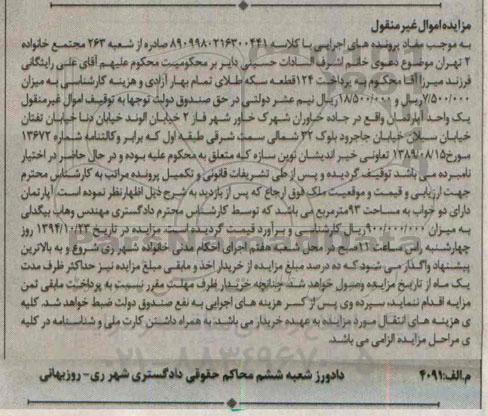 مزایده اموال غیر منقول
به موجب مفاد پرونده های اجرایی با کلاسه ۸۹۰۹۹۸۰۲۱۶۳۰۰۴۴۱ صادره از شعبه ۲۶۳ مجتمع خانواده
۲ تهران موضوع دعوی خانم اشرف السادات حسینی دایر بر محکومیت محکوم علیهم آقای علی رایتگانی
فرزند میرزا آقا محکوم به پرداخت ۱۲۴قطعه سکه طلای تمام بهار آزادی و هزینه کارشناسی به میزان
۷/۵۰۰/۰۰۰ریال و ۱۸/۵۰۰/۰۰۰ریال نیم عشر دولتی در حق صندوق دولت توجها به توقیف اموال غیرمنقول
یک واحد آپارتمان واقع در جاده خاوران شهرک خاور شهر فاز ۲ خیابان الوند خیابان دنا خیابان تفتان
خیابان سبلان خیابان جاجرود بلوک ۳۲ شمالی سمت شرقی طبقه اول که برابر وکالتنامه شماره ۱۳۶۷۲
مورخ۱۳۸۹/۰۸/۱۵ تعاونی خیر اندیشان نوین سازه که متعلق به محکوم علیه بوده و در حال حاضر در اختیار
نامبرده می باشد توقیف گردیده و پس از طی تشریفات قانونی و تکمیل پرونده مراتب به کارشناس محترم
جهت ارزیابی و قیمت و موقعیت ملک فوق ارجاع که پس از بازدید به شرح ذیل اظهارنظر نموده است. آپارتمان
دارای دو خواب به مساحت ۹۳مترمربع می باشد که توسط کارشناس محترم دادگستری مهندس وهاب بیگدلی
به میزان ۹۰۰/۰۰۰/۰۰۰ریال کارشناسی و برآورد قیمت گردیده است. مزایده در تاریخ ۱۳۹۴/۱۰/۲۳ روز
چهارشنبه راس ساعت ۱۱صبح در محل شعبه هفتم اجرای احکام مدنی خانواده شهر ری شروع و به بالاترین
پیشنهاد واگذار می شود که ده درصد مبلغ مزایده از خریدار اخذ و مابقی مبلغ مزایده نیز حداکثر ظرف مدت
یک ماه از تاریخ مزایده وصول خواهد شد. چنانچه خریدار ظرف مهلت مقرر نسبت به پرداخت مابقی ثمن
مزایه اقدام ننماید، سپرده وی پس از کسر هزینه های اجرایی به نفع صندوق دولت ضبط خواهد شد. کلیه
ی هزینه های انتقال مورد مزایده به عهده خریدار می باشد. به همراه داشتن کارت ملی و شناسنامه در کلیه
ی مراحل مزایده الزامی می باشد.
م.الف:۴۰۹۱ دادورز شعبه ششم محاکم حقوقی دادگستری شهر ری- روزبهانی